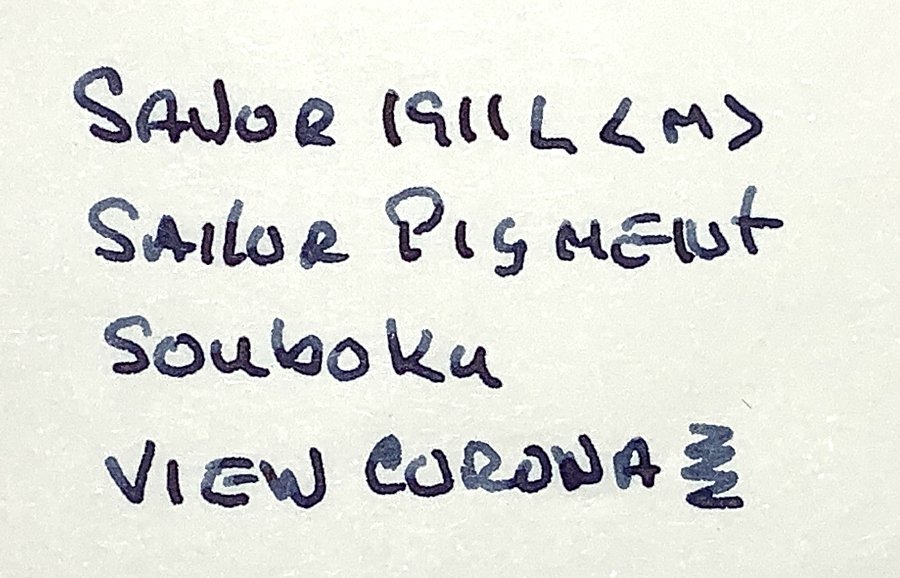 SAILOR 1911L <M>
SAILOR PIGMENT
Souboku
VIEW CORONA